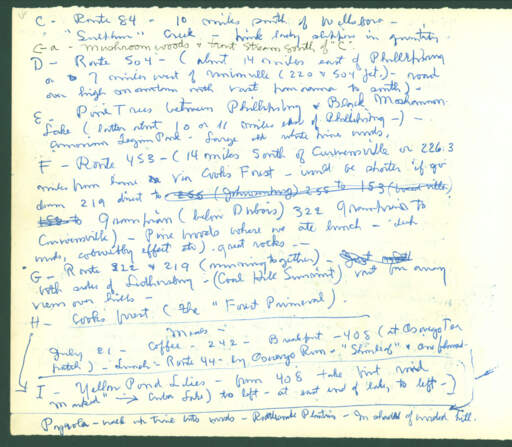 C - Route 84 - 10 miles south of Wellsboro -
"Sulphur" Creek - pink lady slippers in quantity
C-a - mushroom woods & trout stream south of "C"
D - Route 504 - (about 14 miles east of Phillipsburg
or 7 miles west of Unionville (220 & 504 Jct.) - road
over high mountain with vast panorama to south) -
E - Pine Trees between Phillipsburg & Black Moshannon
Lake (latter about 10 or 11 miles east of Phillipsburg -) -
American Legion Park - Large white pine woods.
F - Route 453 - (14 miles South of Curwensville or 226.3
miles from home via Cooks Forest - would be shorter if go
down 219 direct to 255 (Johnsonburg) 255 to 153
153 to Grampian (below Dubois) 322 Grampian to
Curwensville) - Pine woods where we ate lunch - lush
woods, cobwebby effect etc) - great rocks -
G - Route 322 & 219 (running together) - Just
both sides of Luthersburg - (Coal Hill Summit) vast far away
views over hills -
H - Cooks Forest (the "Forest Primeval").
Meals -
July 21 - Coffee - 242 - Breakfast - 408 (at Oswego Tea
) - Lunch - Route 44 - by Oswayo River - "Shinleaf" &
I - Yellow Pond Lilies - from 408 take first road
marked "→ Cuba Lake) to left - at east end of lake, to left -
Pyrola - walk up thru into woods - Rattlesnake Plantain - In shade of wooded hill.